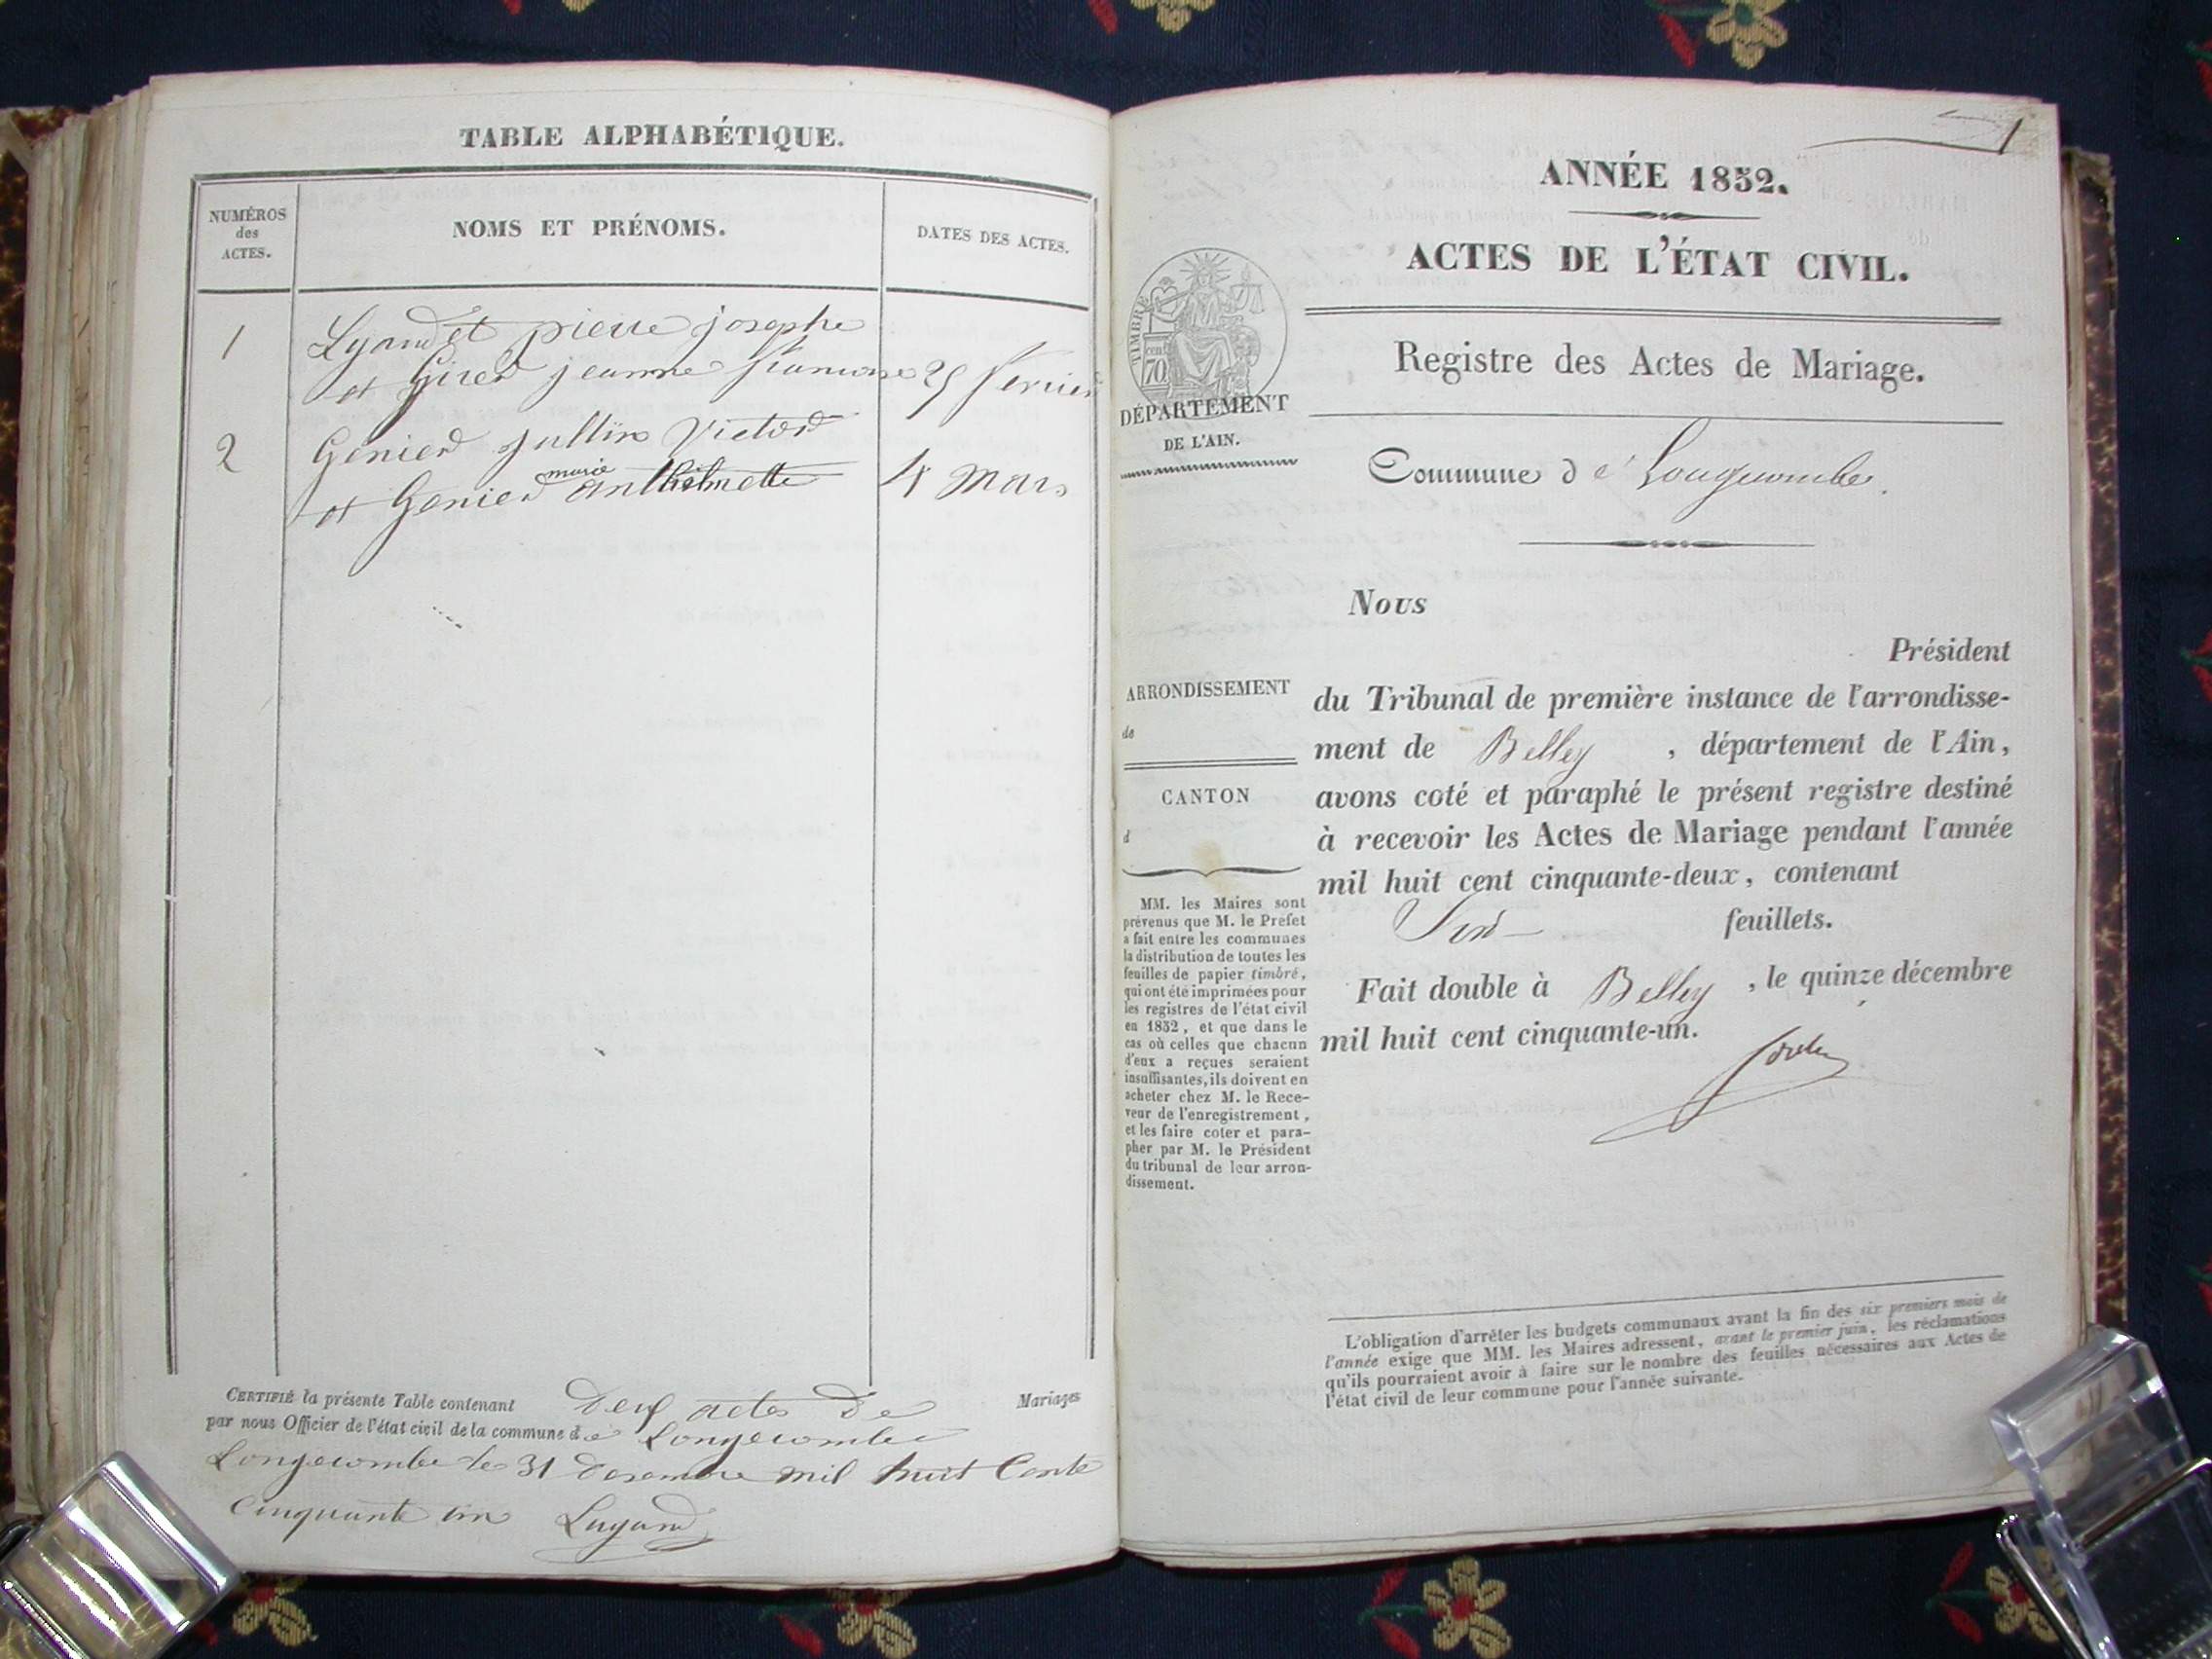 TABLE ALPHABÉTIQUE.
NUMÉROS
des
ACTES.
NOMS ET PRÉNOMS.
DATES DES ACTES.
1
Lyaudet pierre josephe
et Giren jeanne 25 fevrier
2
Genier Jullin Victor
marie
et Genier Anthelmette 4 Mars
CERTIFIÉ la présente Table contenant Deux actes De Mariages
par nous Officier de l'état civil de la commune de Longecombe
Longecombe le 31 Desembre mil huit Cente
cinquante un Lugand
1
ANNÉE 1852.
ACTES DE L'ÉTAT CIVIL.
Registre des Actes de Mariage.
TIMBRE
cent.
70
DÉPARTEMENT
DE L'AIN.
Commune de Longecombe.
Nous
Président
du Tribunal de première instance de l'arrondisse-
ment de Belley , département de l'Ain,
avons coté et paraphé le présent registre destiné
à recevoir les Actes de Mariage pendant l'année
mil huit cent cinquante-deux, contenant
feuillets.
Fait double à Belley , le quinze décembre
mil huit cent cinquante-un.
ARRONDISSEMENT
de
CANTON
d
MM. les Maires sont
prévenus que M. le Prefet
a fait entre les communes
la distribution de toutes les
feuilles de papier timbré,
qui ont été imprimées pour
les registres de l'état civil
en 1852, et que dans le
cas où celles que chacun
d'eux a reçues seraient
insuffisantes, ils doivent en
acheter chez M. le Rece-
veur de l'enregistrement,
et les faire coter et para-
pher par M. le Président
du tribunal de leur arron-
dissement.
L'obligation d'arrêter les budgets communaux avant la fin des six premiers mois de
l'année exige que MM. les Maires adressent, avant le premier juin, les réclamations
qu'ils pourraient avoir à faire sur le nombre des feuilles nécessaires aux Actes de
l'état civil de leur commune pour l'année suivante.